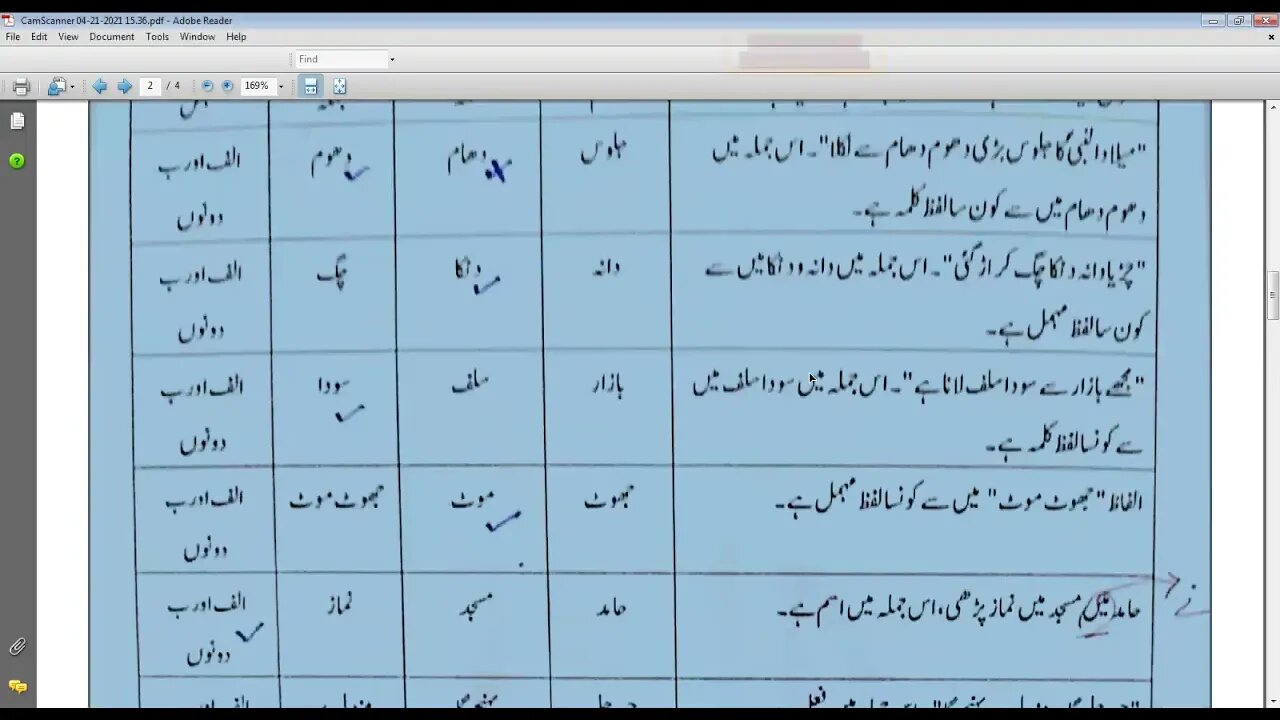 CamScanner 04-21-2021 15.36.pdf - Adobe Reader
File Edit View Document Tools Window Help
Find
2 / 4 169%
"میلاد النبی کا جلوس بڑی دھوم دھام سے نکلا"۔ اس جملہ میں
دھوم دھام میں سے کون سا لفظ کلمہ ہے۔
جلوس
دھام
دھوم
الف اور ب
دونوں
"چڑیا دانہ دنکا چگ کر اڑ گئی"۔ اس جملہ میں دانہ و دنکا میں سے
کون سا لفظ مہمل ہے۔
دانہ
دنکا
چگ
الف اور ب
دونوں
"مجھے بازار سے سودا سلف لانا ہے"۔ اس جملہ میں سودا سلف میں
سے کونسا لفظ کلمہ ہے۔
بازار
سلف
سودا
الف اور ب
دونوں
الفاظ "جھوٹ موٹ" میں سے کونسا لفظ مہمل ہے۔
جھوٹ
موٹ
جھوٹ موٹ
الف اور ب
دونوں
حامد میں مسجد میں نماز پڑھی، اس جملہ میں اسم ہے۔
نے
حامد
مسجد
نماز
الف اور ب
دونوں